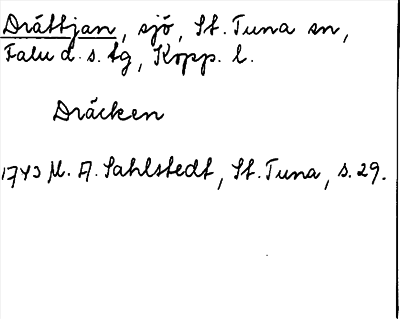 Dråttjan, sjö, St. Tuna sn,
Falu d. s. tg, Kopp. l.
Dräcken
1743 M. A. Sahlstedt, St. Tuna, s. 29.